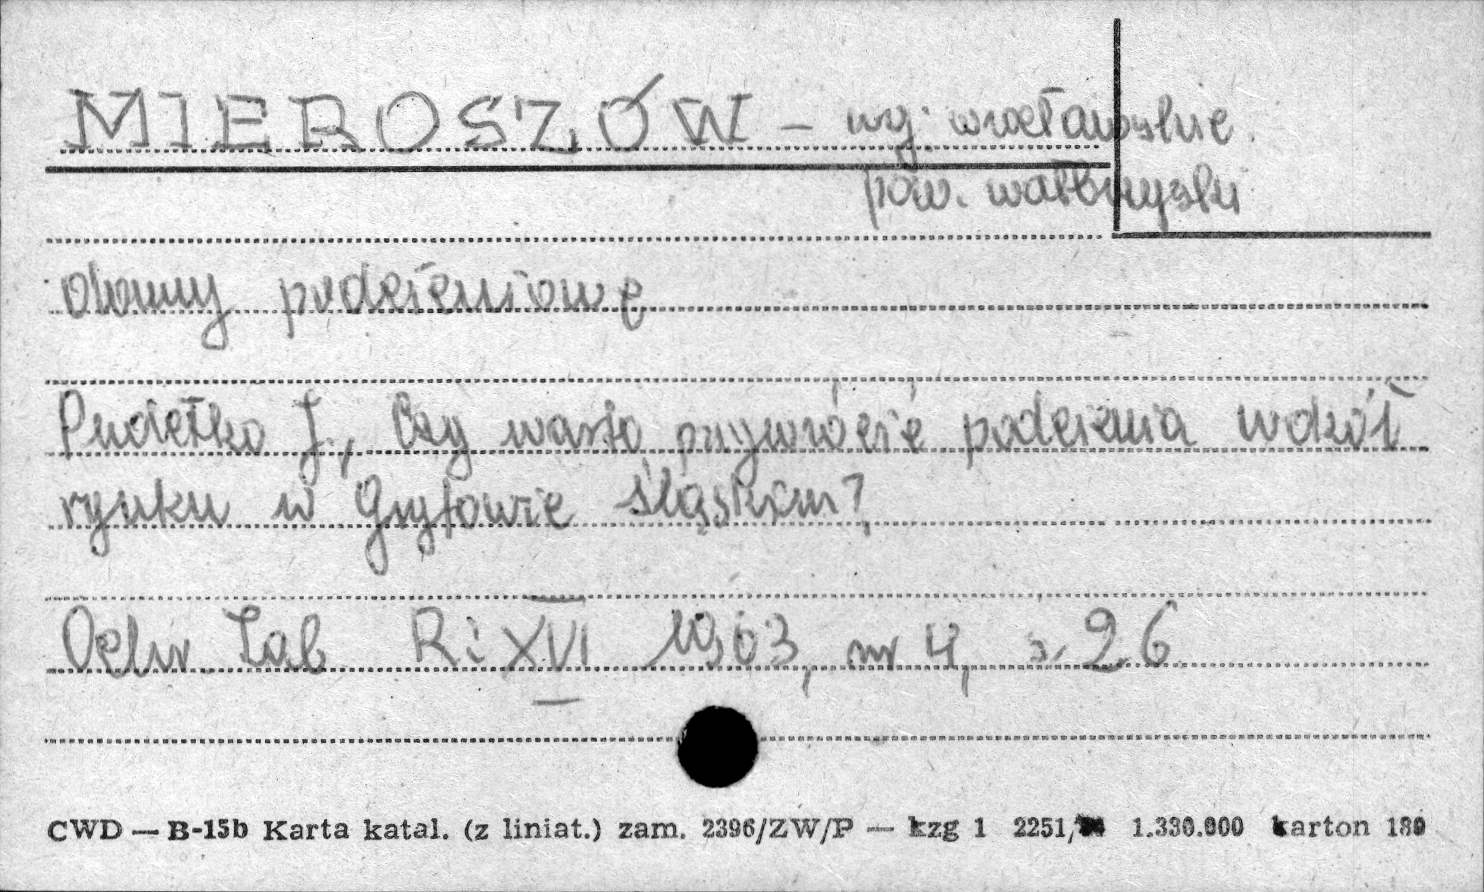 MIEROSZÓW – woj. wrocławskie.
pow. wałbrzyski
domy podcieniowe
Pudełko J., Czy warto przywrócić podcienia wokół
rynku w Gryfowie Śląskim?
Ochr Zab R: XVI 1963, nr 4, s. 26
CWD — B-15b Karta katal. (z liniat.) zam. 2396/ZW/P — kzg 1 2251/ 1.330.000 karton 180